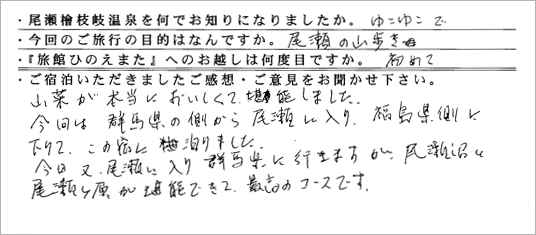 ・尾瀬檜枝岐温泉を何でお知りになりましたか。 ゆこゆこで
・今回のご旅行の目的はなんですか。 尾瀬の山歩き
・『旅館ひのえまた』へのお越しは何度目ですか。 初めて
・ご宿泊いただきましたご感想・ご意見をお聞かせ下さい。
山菜が本当においしくて、堪能しました。
今回は群馬県の側から尾瀬に入り、福島県側に
下りて、この宿に泊りました。
今日又、尾瀬に入り群馬県に行きますが、尾瀬沼と
尾瀬ヶ原が堪能できて、最高のコースです。